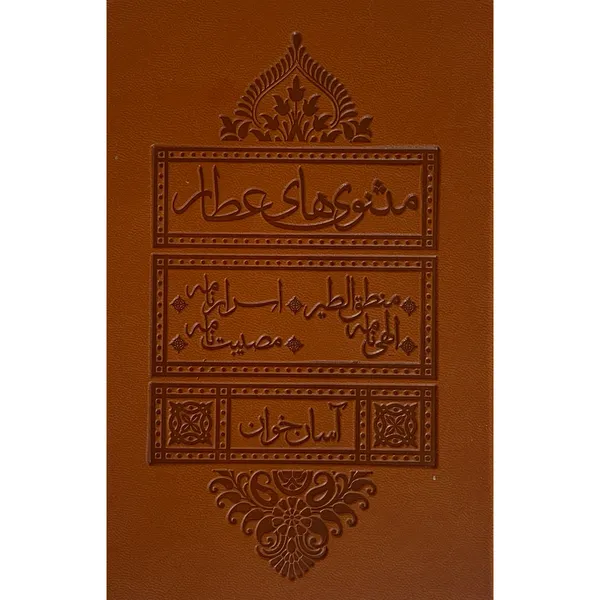 مثنوی‌های عطار
منطق‌الطیر اسرارنامه
الهی‌نامه مصیبت‌نامه
آسان‌خوان